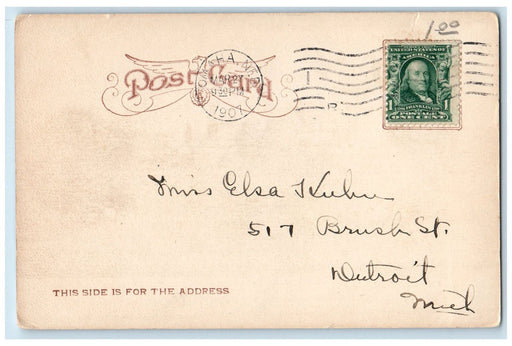 1.00
Post Card
OMAHA, NEBR.
1907
UNITED STATES OF
AMERICA
1 1
FRANKLIN
POSTAGE
ONE CENT
Miss Elsa Kuhn
517 Brush St.
Detroit
Mich
THIS SIDE IS FOR THE ADDRESS